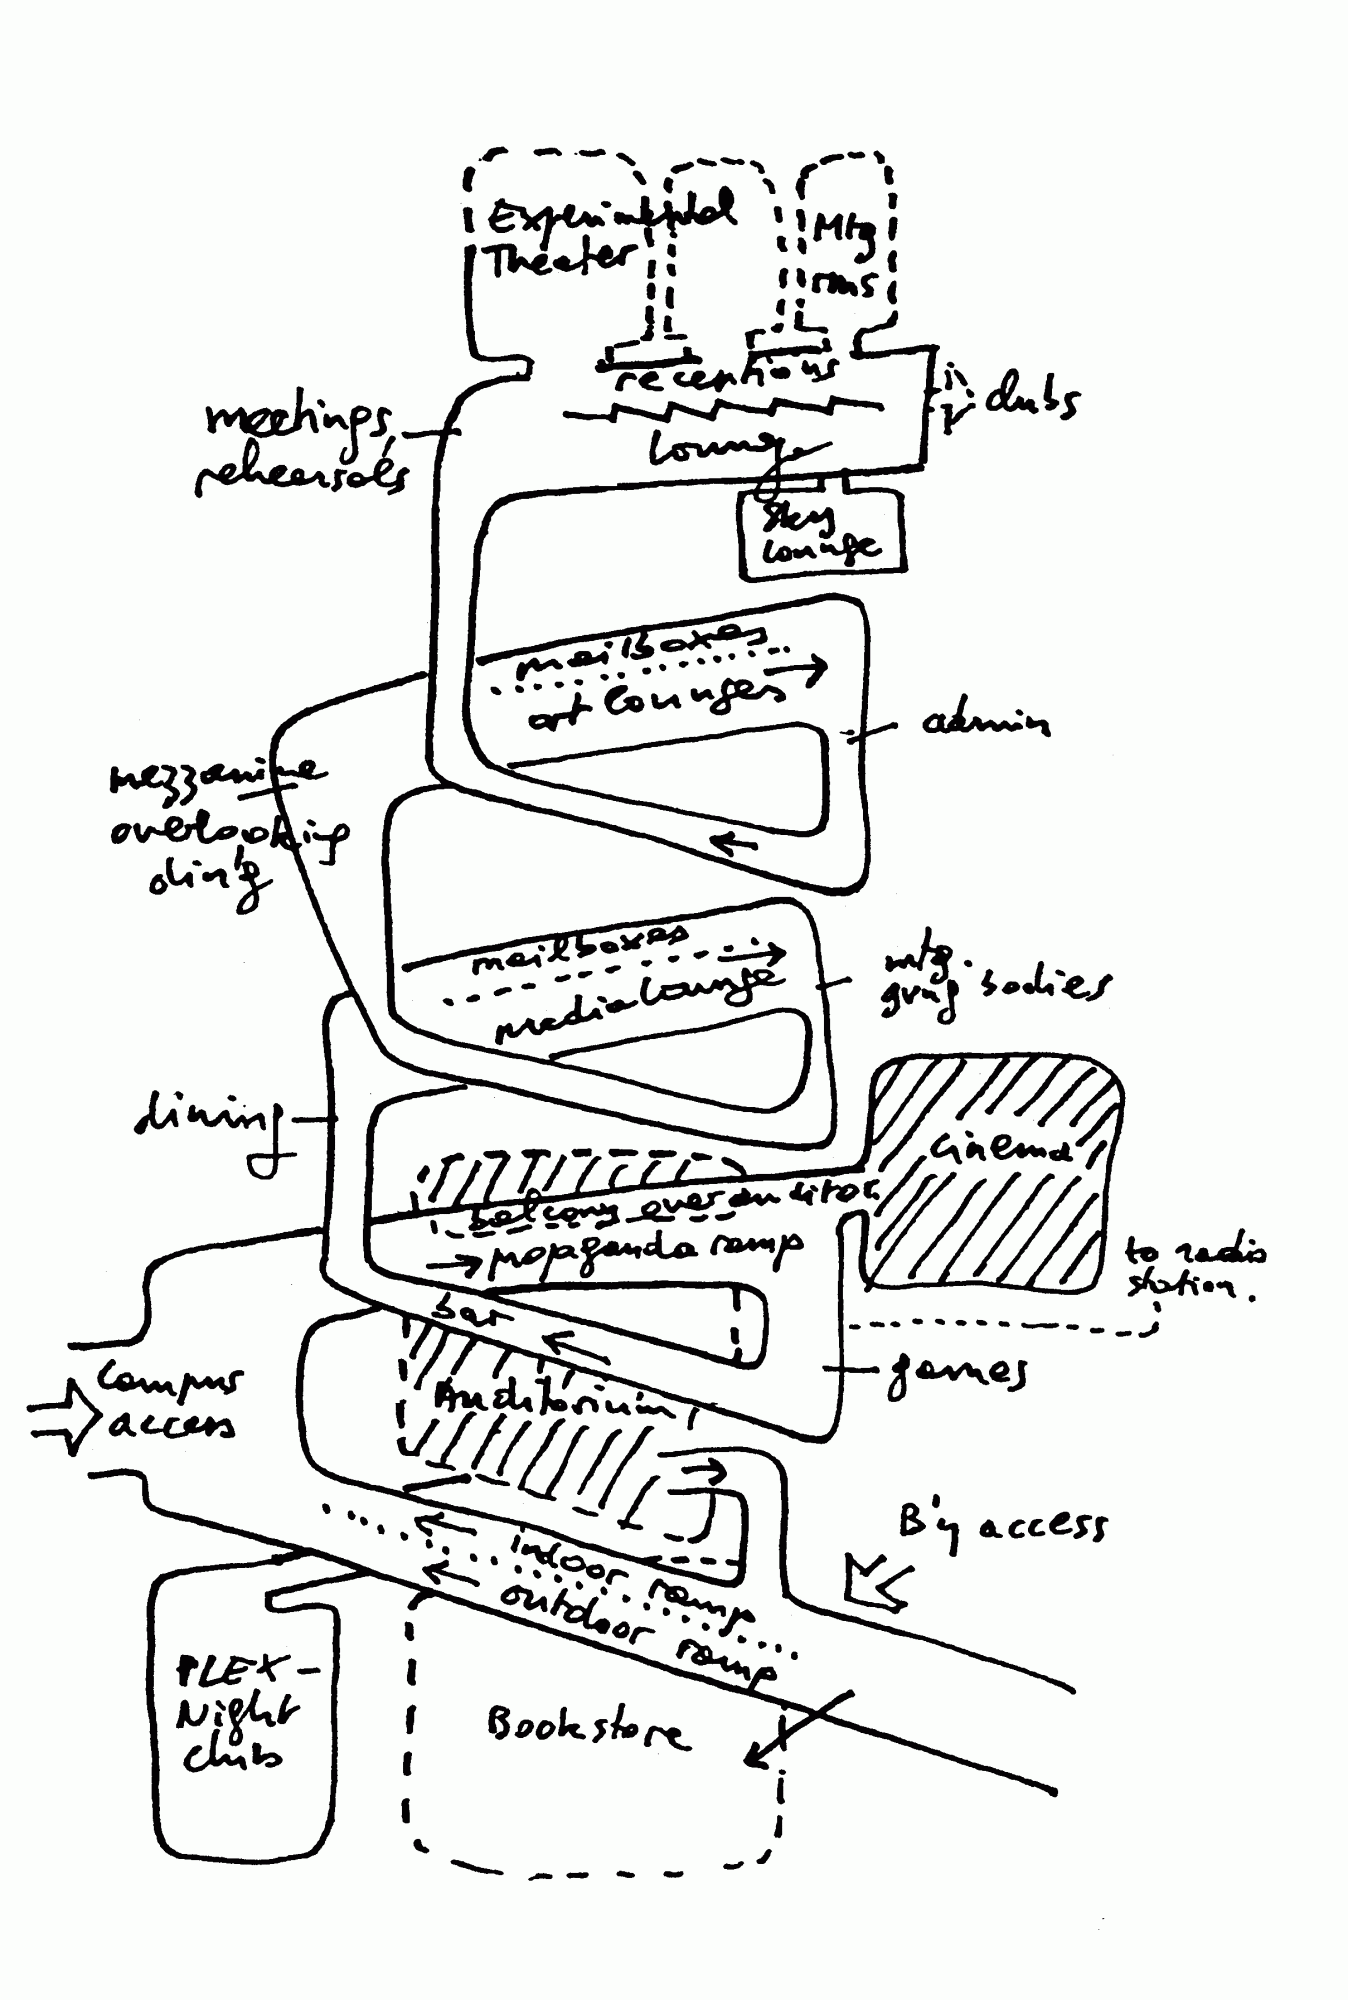 Experimental
Theater
Mtg
rms
receptions
clubs
meetings,
rehearsals
lounge
Sky
lounge
mailboxes
art lounges
admin
mezzanine
overlooking
din'g
mailboxes
media lounge
mtg.
gvng. bodies
dining
cinema
balcony over auditor.
propaganda ramp
to radio
station.
bar
games
Campus
access
Auditorium
B'y access
indoor ramp
outdoor ramp
PLEX-
Night
club
Bookstore